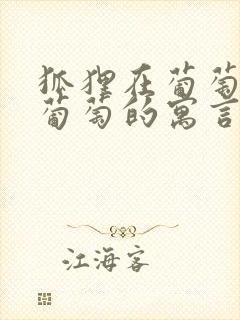 狐狸在葡萄
葡萄的寓言
江海客